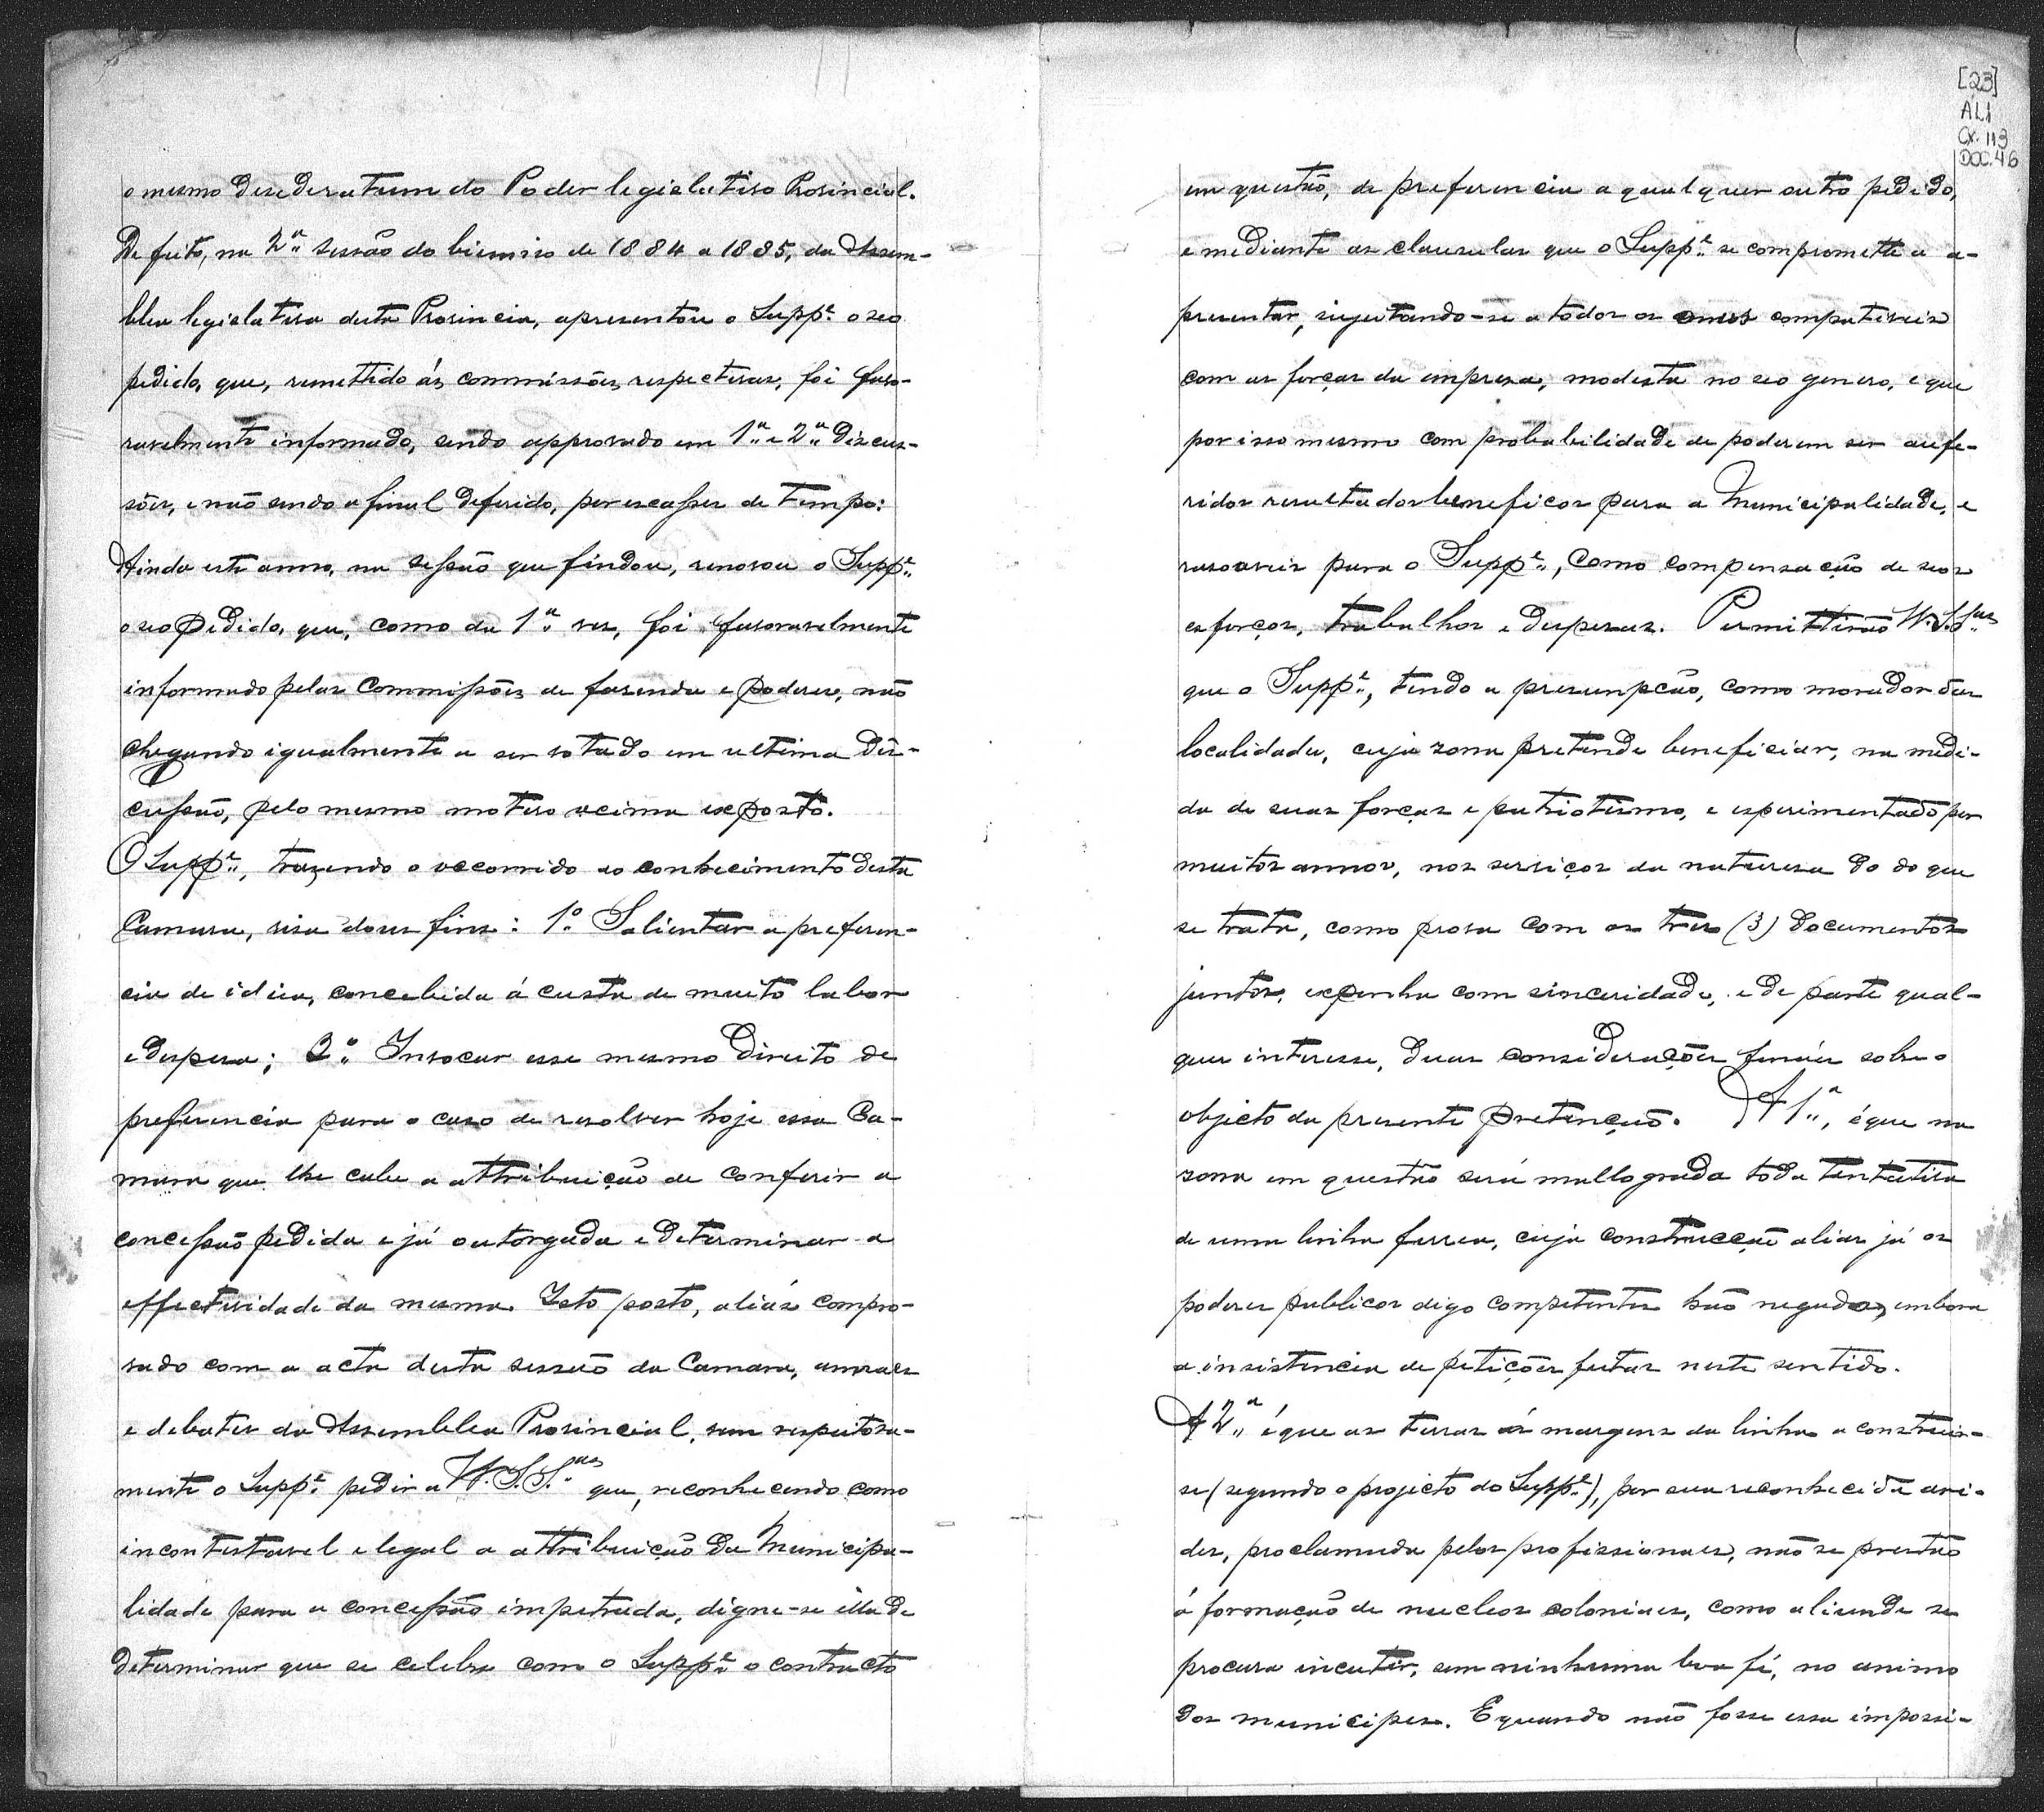 o mesmo desederatum do Poder legislativo Provincial.
De feito, na 2ª sessão do biennio de 1884 a 1885, da Assem-
blea legislativa desta Provincia, apresentou o Suppe. o seo
pedido, que, remettido ás commissões respectivas, foi favo-
ravelmente informado, sendo approvado em 1ª e 2ª discus-
sões, e não sendo afinal deferido, por escasses de tempo:
Ainda este anno, na sessão que findou, renovou o Suppe.
o seo pedido, que, como da 1ª ves, foi favoravelmente
informado pelas Commissões de fasenda e poderes, não
chegando igualmente a ser votado em ultima dis-
cussão, pelo mesmo motivo acima exposto.
O Suppe., trazendo o occorrido ao conhecimento desta
Camara, visa dous fins: 1º Salientar a preferen-
cia de idéia, concebida á custa de muito labor
e despesa; 2º Invocar esse mesmo direito de
preferencia para o caso de resolver hoje essa Ca-
mara que lhe cabe a attribuição de conferir a
concessão pedida e já outorgada e determinar a
effectividade da mesma. Isto posto, aliás compro-
vado com a acta desta sessão da Camara, annaes
e debates da Assemblea Provincial, vem respeitosa-
mente o Suppe. pedir a V.V. S.S.as que, reconhecendo como
incontestavel e legal a attribuição da Municipa-
lidade para a concessão impetrada, digne-se ella de
determinar que se celebre com o Suppe. o contracto
[23]
ALI
CX. 113
DOC. 46
em questão, de preferencia a qualquer outro pedido,
e mediante as clausulas que o Suppe. se compromette a a-
presentar, sujeitando-se a todos os onus compativeis
com as forças da impresa, modesta no seo genero, e que
por isso mesmo com probabilidade de poderem ser aufe-
ridos resultados beneficos para a Municipalidade, e
rasoaveis para o Suppe., como compensação de seos
esforços, trabalhos e despesas. Permittirão V.V. S.S.as
que o Suppe., tendo a presumpcão, como morador das
localidades, cuja zona pretende beneficiar, na medi-
da de suas forças e patriotismo, e esperimentado por
muitos annos, nos serviços da naturesa do do que
se trata, como prova com os tres (3) documentos
juntos, exponha com sinceridade, e de parte qual-
quer interesse, duas considerações finaes sobre o
objecto da presente pretenção. A 1ª, é que na
zona em questão será mallograda toda tentativa
de uma linha ferrea, cuja construcção alias já os
poderes publicos digo competentes hão negado, embora
a insistencia de petições feitas neste sentido.
A 2ª é que as terras ás margens da linha a construir-
se (segundo o projecto do Suppe.), por sua reconhecida ari-
des, proclamada pelos profissionaes, não se prestão
á formação de nucleos coloniaes, como aliunde se
procura incutir, sem ninhuma boa fé, no animo
dos municipes. E quando não fosse essa impossi-